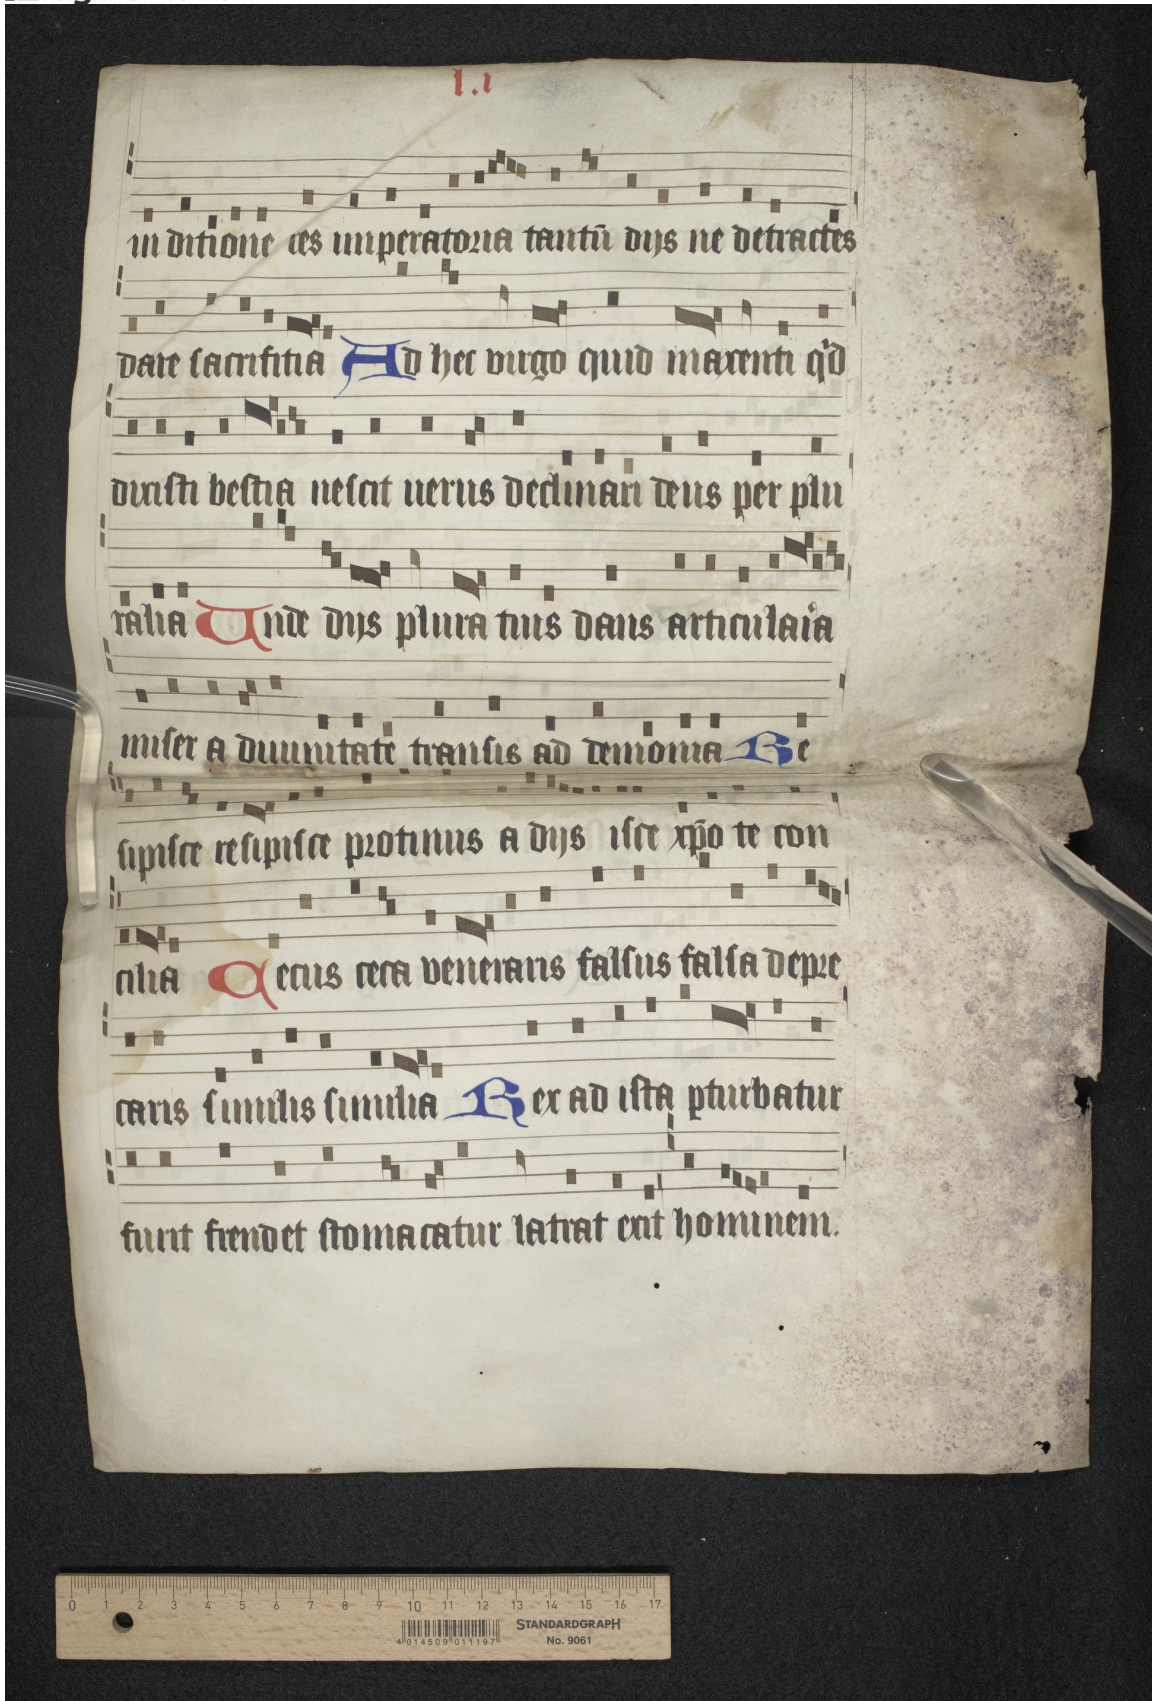 l.i
in ditione ces imperatoria tantū dijs ne detractes
dare sacrifitia Ad hec virgo quid maxenti qd
dixisti bestia nescit uerus declinari deus per plu
ralia Unde dijs plura tuis dans articulata
miser a diuinitate transis ad demonia Re
sipisce resipisce protinus a dijs isce xp̄o te con
cilia Cecus ceca veneraris falsus falsa depre
caris similis similia Rex ad ista pturbatur
furit frendet stomacatur latrat erit hominem.
0 1 2 3 4 5 6 7 8 9 10 11 12 13 14 15 16 17
4 014509 011197
STANDARDGRAPH
No. 9061